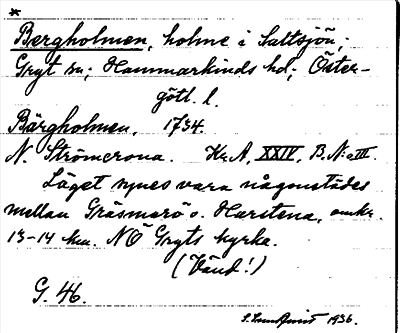 *
Bergholmen, holme i Saltsjön;
Gryt sn; Hammarkinds hd; Öster-
götl. l.
Bärgholmen, 1734.
N. Strömcrona. Kr.A, XXIV, B. N:o III.
Läget synes vara någonstädes
mellan Gräsmarö o. Harstena, omkr.
13-14 km. NÖ Gryts kyrka.
(Vänd!)
G. 46.
1936.